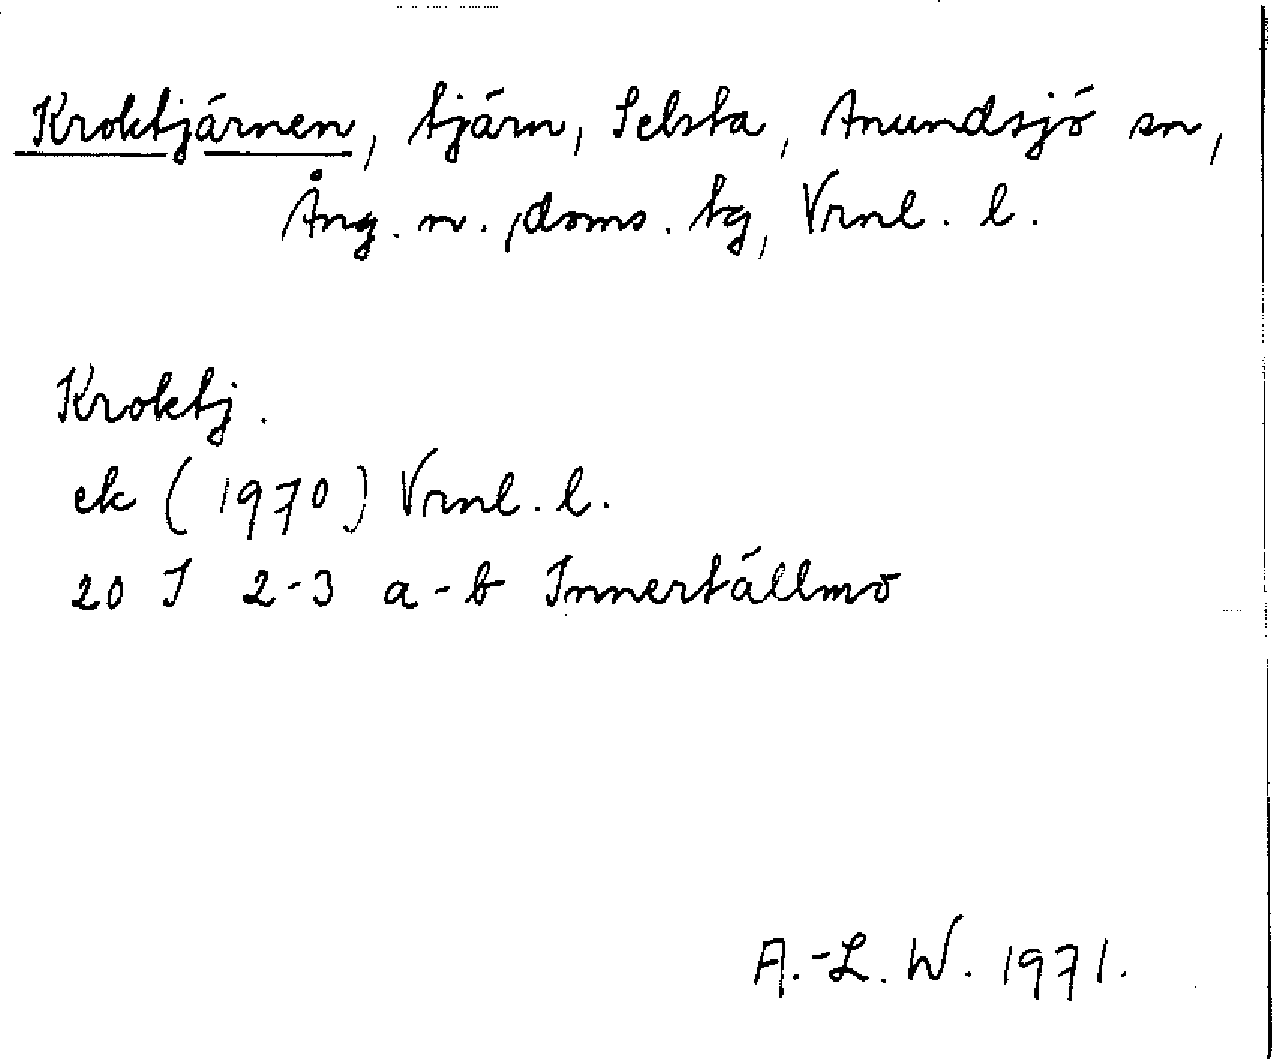 Kroktjärnen, tjärn, Selsta, Anundsjö sn,
Ång. n. doms. tg, Vrnl. l.
Kroktj.
ek (1970) Vrnl. l.
20 I 2-3 a-b Innertällmo
A.-L. W. 1971.